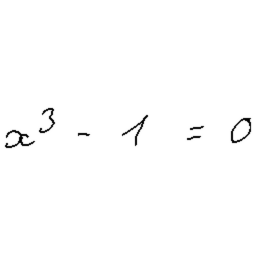 x³ - 1 = 0